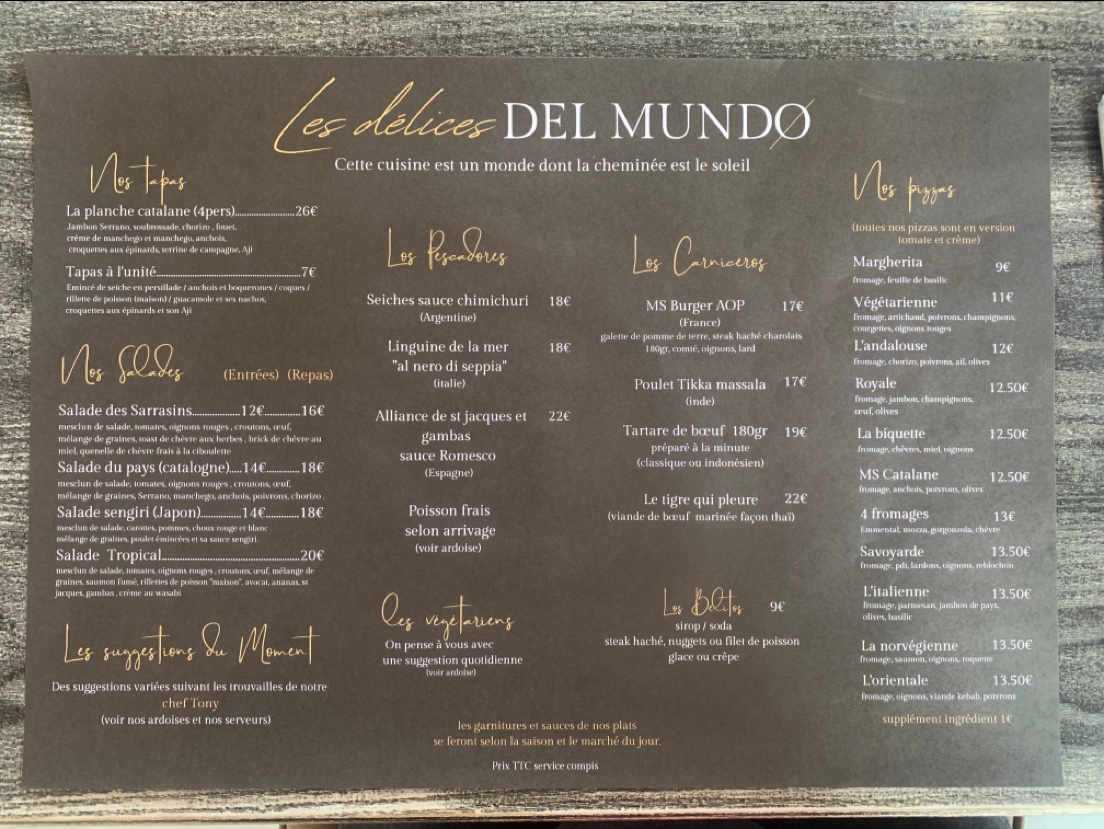 Les délices DEL MUNDO
Cette cuisine est un monde dont la cheminée est le soleil
Nos tapas
La planche catalane (4pers)......................26€
Jambon Serrano, soubrossade, chorizo , fouet,
crème de manchego et manchego, anchois,
croquettes aux épinards, terrine de campagne, Aji
Tapas à l'unité.....................................................7€
Emincé de seiche en persillade / anchois et boquerones / coques /
rillette de poisson (maison) / guacamole et ses nachos,
croquettes aux épinards et son Aji
Nos Salades (Entrées) (Repas)
Salade des Sarrasins.................12€.............16€
mesclun de salade, tomates, oignons rouges , croutons, œuf,
mélange de graines, toast de chèvre aux herbes , brick de chèvre au
miel, quenelle de chèvre frais à la ciboulette
Salade du pays (catalogne).....14€.............18€
mesclun de salade, tomates, oignons rouges , croutons, œuf,
mélange de graines, Serrano, manchego, anchois, poivrons, chorizo .
Salade sengiri (Japon)..............14€.............18€
mesclun de salade, carottes, pommes, choux rouge et blanc
mélange de graines, poulet émincées et sa sauce sengiri.
Salade Tropical...................................................20€
mesclun de salade, tomates, oignons rouges , croutons, œuf, mélange de
graines, saumon fumé, rillettes de poisson "maison", avocat, ananas, st
jacques, gambas , crème au wasabi
Les suggestions du Moment
Des suggestions variées suivant les trouvailles de notre
chef Tony
(voir nos ardoises et nos serveurs)
Los Pescadores
Seiches sauce chimichuri 18€
(Argentine)
Linguine de la mer 18€
"al nero di seppia"
(italie)
Alliance de st jacques et 22€
gambas
sauce Romesco
(Espagne)
Poisson frais
selon arrivage
(voir ardoise)
les végétariens
On pense à vous avec
une suggestion quotidienne
(voir ardoise)
Los Carniceros
MS Burger AOP 17€
(France)
galette de pomme de terre, steak haché charolais
180gr, comté, oignons, lard
Poulet Tikka massala 17€
(inde)
Tartare de bœuf 180gr 19€
préparé à la minute
(classique ou indonésien)
Le tigre qui pleure 22€
(viande de bœuf marinée façon thaï)
Los Bélitos 9€
sirop / soda
steak haché, nuggets ou filet de poisson
glace ou crêpe
les garnitures et sauces de nos plats
se feront selon la saison et le marché du jour.
Prix TTC service compis
Nos pizzas
(toutes nos pizzas sont en version
tomate et crème)
Margherita 9€
fromage, feuille de basilic
Végétarienne 11€
fromage, artichaud, poivrons, champignons,
courgettes, oignons rouges
L'andalouse 12€
fromage, chorizo, poivrons, ail, olives
Royale 12.50€
fromage, jambon, champignons,
œuf, olives
La biquette 12.50€
fromage, chèvres, miel, oignons
MS Catalane 12.50€
fromage, anchois, poivrons, olives
4 fromages 13€
Emmental, mozza, gorgonzola, chèvre
Savoyarde 13.50€
fromage, pdt, lardons, oignons, reblochon
L'italienne 13.50€
fromage, parmesan, jambon de pays,
olives, basilic
La norvégienne 13.50€
fromage, saumon, oignons, roquette
L'orientale 13.50€
fromage, oignons, viande kebab, poivrons
supplément ingrédient 1€